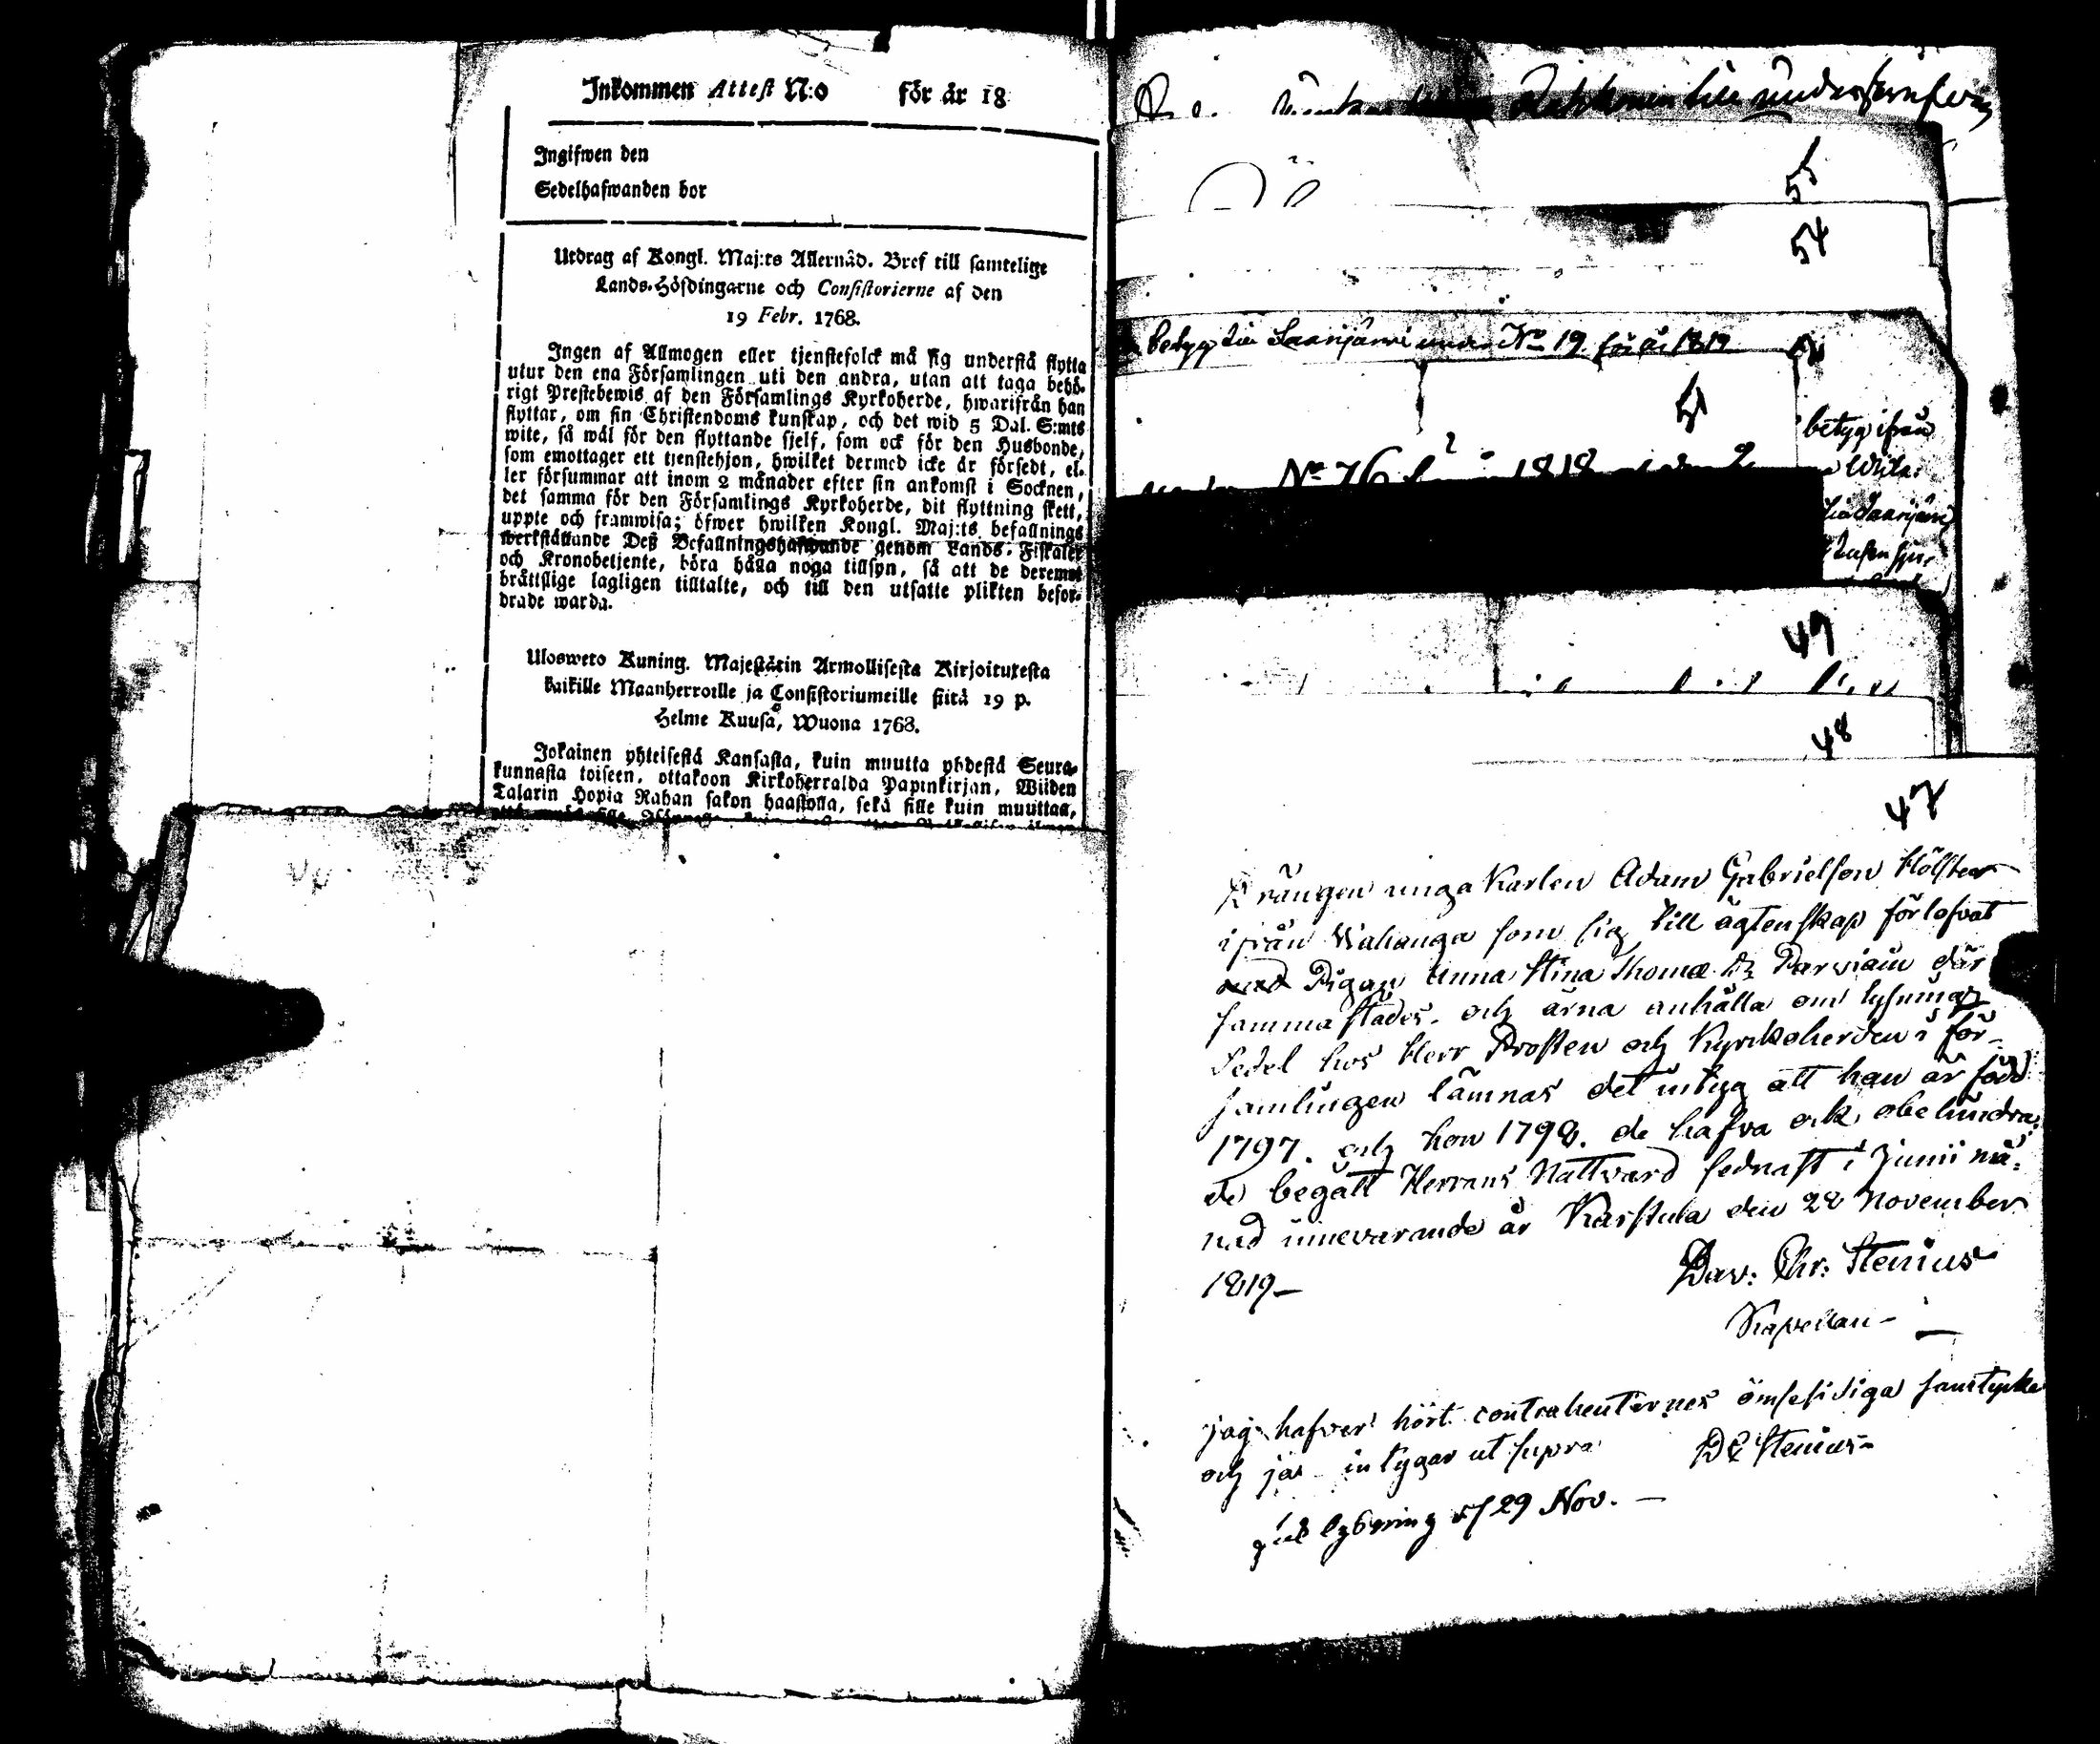 Inkommen Attest N:o för år 18
Ingifwen den
Sedelhafwanden bor
Utdrag af Kongl. Maj:ts Allernåd. Bref till samtelige
Lands-Höfdingarne och Consistorierne af den
19 Febr. 1768.
Ingen af Allmogen eller tjenstefolck må sig understå flytta
utur den ena Församlingen uti den andra, utan att taga behö-
rigt Prestebewis af den Församlings Kyrkoherde, hwarifrån han
flyttar, om sin Christendoms kunskap, och det wid 5 Dal. S:mts
wite, så wäl för den flyttande sjelf, som ock för den Husbonde,
som emottager ett tjenstehjon, hwilket dermed icke är försedt, el-
ler försummar att inom 2 månader efter sin ankomst i Socknen,
det samma för den Församlings Kyrkoherde, dit flyttning skett,
uppte och framwisa; öfwer hwilken Kongl. Maj:ts befallnings
werkställande Deß Befallningshafwande genom Lands-Fiskaler
och Kronobetjente, böra hålla noga tillsyn, så att de deremot
bråttslige lagligen tilltalte, och till den utsatte plikten befor-
drade warda.
Ulosweto Kuning. Majestätin Armollisesta Kirjoituxesta
kaikille Maanherroille ja Consistoriumeille siitä 19 p.
Helme Kuusa, Wuona 1768.
Jokainen yhteisestä Kansasta, kuin muutta yhdestä Seura-
kunnasta toiseen, ottakoon Kirkoherralda Papinkirjan, Wiiden
Talarin Hopia Rahan sakon haastolla, sekä sille kuin muuttaa,
till underskrifwen
55
54
betyg till Saarijärwi under No 19 för år 1819
51
No 76 1818
betyg ifrån
49
48
47
Drängen unga Karlen Adam Gabrielson Hölster
ifrån Wahanga som sig till ägtenskap förlofvat
med Pigan Anna Stina Thomæ Dr Parwiain där
samma städes. och ärna anhålla om lysnings
Sedel hos Herr Prosten och Kyrkoherden i för-
samlingen lämnas det intyg att han är född
1797. och hon 1798. de hafva ock obehindra-
de begått Herrans Nattvard sednast i Junii må-
nad innevarande år Karstula den 28 November
1819-
Dav: Chr: Stenius
Kapellan-
jag hafver hört contrahenternes ömsesidiga samtycke
och ja intygar ut supra
DC Stenius-
lysning d/29 Nov. -